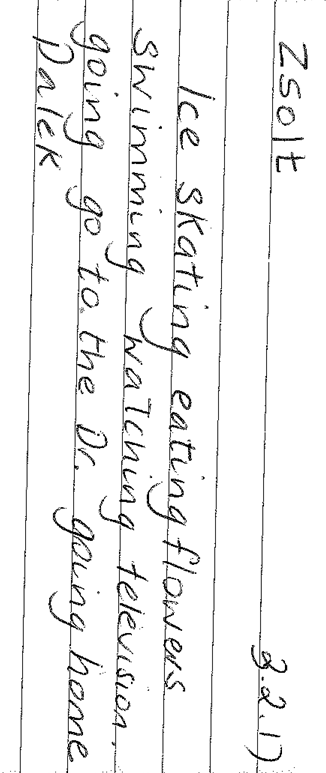 Zsolt 3.2.17
Ice skating eating flowers
swimming watching television.
going go to the Dr. going home
Dalek